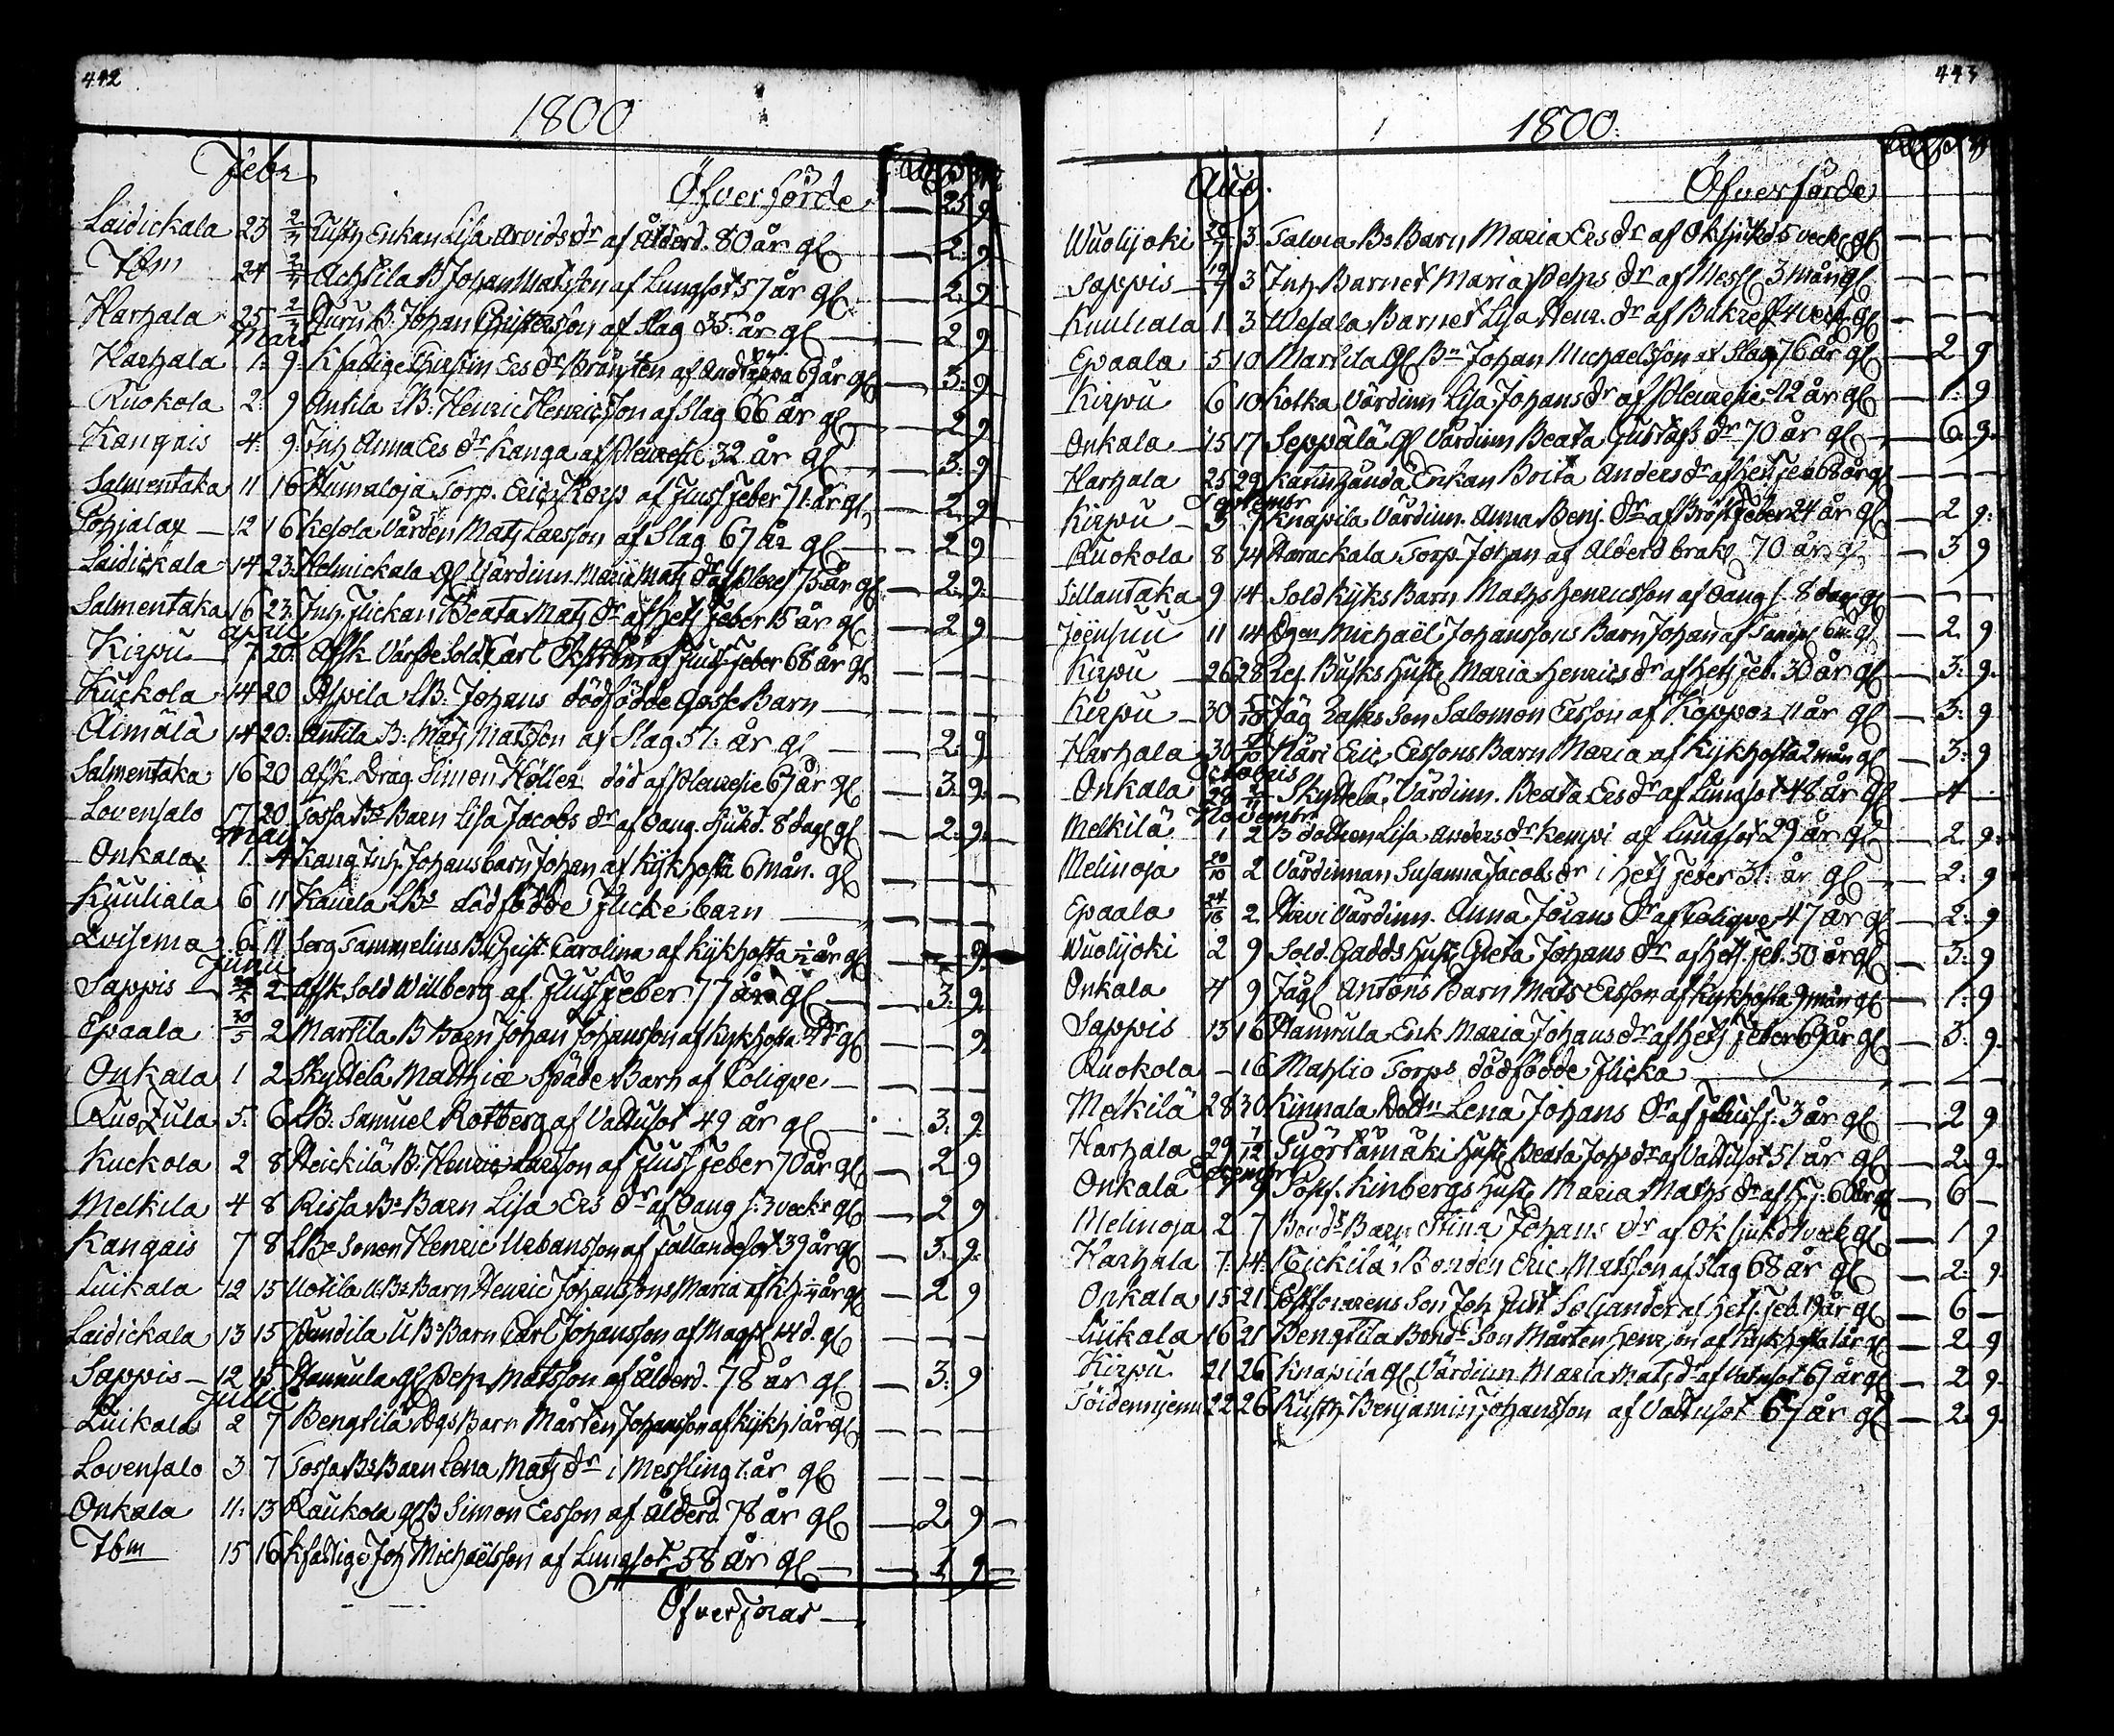 442
1800
Febr
Öfverförde — 25 9
Laidickala 23 2/3 Enkan Lisa Arvids dr af Ålderd. 80 år gl — 2: 9
Ibm 24 2/3 Achtila B Johan Matsson af Lungsot 57 år gl — 2. 9
Harhala 25 2/3 B. Johan Christersson af Slag 35 år gl — 2 9
Mars
Harhala 1. 9. Kfattige Christin Ers dr af Andtäppa 69 år gl — 3: 9
Ruokola 2. 9 Antila LB: Henric Henricsson af Slag 66 år gl — 2 9
Kangais 4. 9. Inh Anna Ers dr Kanga af Pleuresie 32 år gl — 3: 9
Salmentaka 11 16 Humaloja Torp. Eric af flussfeber 71 år gl — 2. 9
Pohjalax — 12 16 Kesola Värden Mats Larsson af Slag 67 år gl — 2 9
Laidickala 14 23. Helmickala Gl Värdinn. Maria Mats dr af Pleures 75 år gl — 2. 9.
Salmentaka 16 23. Inh. flickan Beata Mats dr af het. feber 15 år gl — 2 9
April
Kirpu — 7 20. Afsk. Sold Carl Ökström af flussfeber 68 år gl — — —
Kuckola 14 20 LB: Johans dödfödde Gosse Barn — — — —
Äimälä 14 20: Antila B: Mats Matsson af Slag 57: år gl — 2. 9
Salmentaka 16 20 Afsk. Drag. Simon Höller död af Pleuresie 67 år gl — 3: 9.
Lovensalo 17 20 Tossa Bs Barn Lisa Jacobs dr af Oang. sjukd. 8 dag. gl — 2. 9.
Maij
Onkala 1. 4 Kang Inh. Johans barn Johan af Kykhosta 6 mån. gl — — —
Kuuliala 6 11 Kauela Bs dödfödde flicke barn — — — —
6 11 Serg Tammelins B. Christ Carolina af Kykhosta 1/2 år gl — — 9.
Junii
Sappis — 2 Afsk Sold Willberg af fluss feber 77 år gl — 3: 9.
Epaala 30/5 2 Martila B Barn Johan Johansson af Kykhosta gl — — 9.
Onkala 1 2 Skyttela Matthiæ Späde Barn af Colique — — — —
5. 6 LB: Samuel Rotberg af Vattusot 49 år gl — 3. 9.
Kuckola 2 8 Heickilä B: Henric Larsson af fluss feber 70 år gl — 2 9
Melkila 4 8 Rissa Bs Barn Lisa Ers dr af Oang s: 3 veckr gl — 2 9
Kangais 7 8 LBs Sonen Henric Urbansson af fallandesot 39 år gl — 3. 9.
Luikala 12 15 Uotila U:Bs Barn Henric Johanssons Maria af Kh år gl — 2 9
Laidickala 13 15 U Bs Barn Carl Johansson af d. gl — — —
Sappis — 12 15 Hannula gl Petr Matsson af Ålderd. 78 år gl — 3. 9
Julii
Luikala 2 7 Bengtilä Barn Mårten Johansson af Kykh 1 år gl — — —
Lovensalo 3 7 Tossa Bs Barn Lena Mats dr i Messling 1: år gl — — —
Onkala 11: 13 Raukola gl B Simon Ersson af Ålderd 78 år gl — 2. 9
Ibm 15 16 Kfattige Joh Michaëlsson af Lungsot 58 år gl — 1 9
Öfverföras —
443
1800.
Aug.
Öfverförde
Wuolijoki 3. Talvia Bs Barn Maria Ers dr af Ok sjukd 5 veck gl — — —
Sappis — 19/7 3 Inh. Barnet Maria Pehrs dr af Messl 3 mån gl — — —
Kuuliala 1 3 Uesala Barnet Lisa Henr. dr af Bukref 4 veck gl — — —
Epaala 5 10 Martila Gl Bn Johan Michaelsson af Slag 76 år gl — 2 9
Kirpu 6 10 Kotka Värdinn Lisa Johans dr af Pleuresie 42 år gl — 1: 9
Onkala 15 17 Seppälä Gl Värdinn Beata Gustafs dr 70 år gl — 6. 9.
Harhala 25 29 Enkan Brita Anders dr af Het. feb 68 år gl — — —
Septembr
Kirpu 3 7 Knapila Värdinn. Anna Benj. dr af Bröstfeber 24 år gl — 2 9:
Ruokola 8 14 Harackala Torp. Johan af Alderdbräk 70 år gl — 3 9
Sillantaka 9 14. Sold Kyks Barn Maths Henricsson af Oang s. 8 dagr gl — — —
Joënsuu 11 14 Dgen Michaël Johanssons Barn Johan af gl — 2. 9
Kirpu — 26 28 Res. Busks hustr Maria Henrics dr af het feb. 30 år gl — 3. 9.
Kirpu — 30 5/10 Jäg Son Salomon Ersson af Koppor 11 år gl — 3. 9
Harhala 30 Näri Eric Ersons Barn Maria af Kykhosta 2 mån gl — 3: 9
Octobris
Onkala 28 2/11 Skyttelä Värdinn. Beata Ers dr af Lungsot 48 år gl — 4 —
Novembr
Melkilä 1 2 B dottren Lisa Anders dr Kempi af Lungsot 29 år gl — 2. 9.
Melinoja 20/10 2 Värdinnan Susanna Jacobs dr i het. feber 31: år gl — 2: 9
Epaala 24/10 2. Värdinn. Anna Jörans dr af Colique 47 år gl — 2: 9
Wuolijoki 2 9 Sold. Gadds hustr Greta Johans dr af het. feb. 50 år gl — 3: 9
Onkala 4 9 Jägl Antons Barn Mats Ersson af Kykhosta 9 mån gl — 1: 9
Sappis 13 16 Hannula Enk Maria Johans dr af het feber 69 år gl — 3. 9
Ruokola — 16 Mahlio Torps dödfödde flicka — — — —
Melkilä 28 30 Kinnala Dottr Lena Johans dr af flussf. 3 år gl — 2 9
Harhala 29 7/12 Syörtämäki Hustr Beata Joh dr af Vattusot 51 år gl — 2. 9.
Decembr
Onkala 9 Kinbergs hustr Maria Maths dr af 60 år gl — 6 —
Melinoja 2 7 Barn Stina Johans dr af Ok sjukd 1 veck gl — 1 9
Harhala 7. 14. Bonden Eric Matsson af Slag 68 år gl — 2. 9.
Onkala 15 21 Son Joh Gust Soljander af het. feb. 19 år gl — 6 —
Luikala 16 21 Bengtila Bonds Son Mårten Henrsson af Kykhosta 1 år gl — 2 9
Kirpu 21 26 Knapila gl Värdinn Maria Mats dr af Vattusot 67 år gl — 2 9
22 26 Benjamin Johansson af Vattusot 67 år gl — 2. 9.